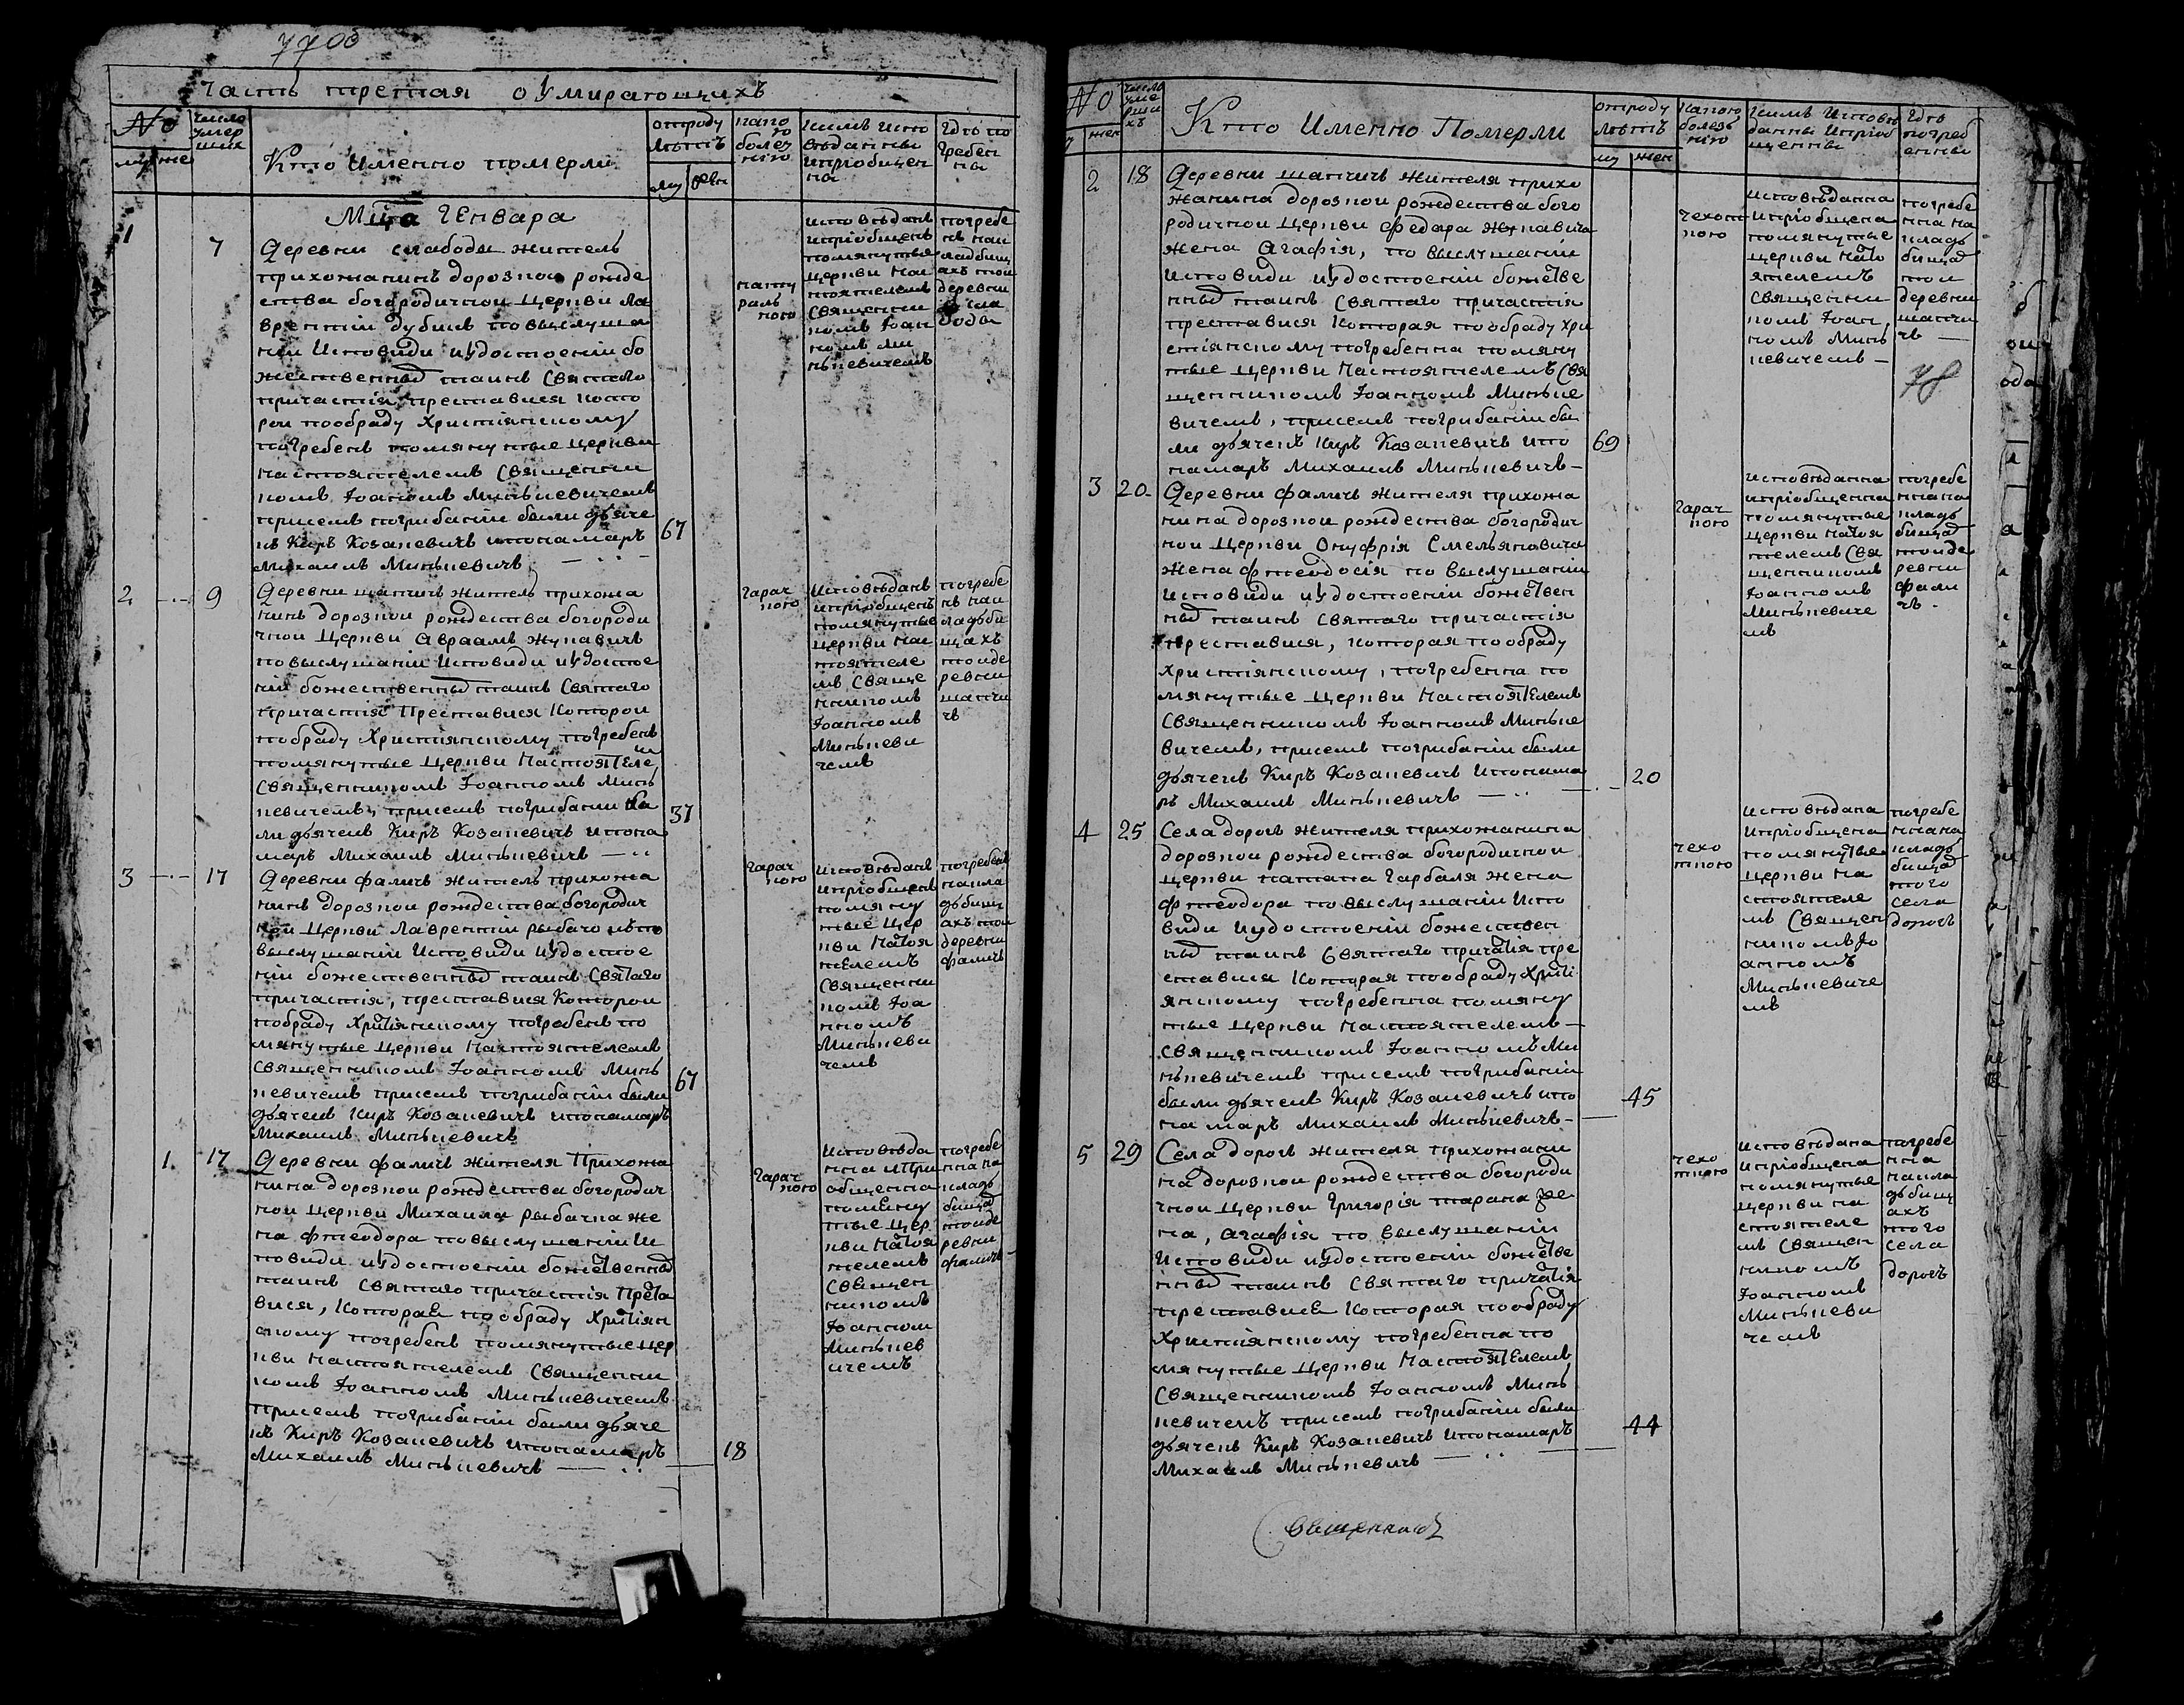 Часть третая о умирающихъ
№
число умер шихъ
му же
Кто Именно померли
отроду лѣтъ
му жен
какою болез нію
Кимъ Испо вѣданны ипріобщен ны
Гдѣ по гребен ны
Мца Генвара
1
7
Деревни слабоды житель
прихожанинъ дорозкои рожде
ства богородичнои Церкви Ла
врентіи дубикъ по выслуша
нии Исповиди иудостоеніи бо
жественныхъ таинъ Святаго
причастія преставися кото
рои пообраду Християнскому
погребенъ помянутые церкви
настоятелемъ Священни
комъ Іоанномъ Минькевичемъ
присемъ погрибании были дьяче
къ Киръ Козакевичъ ипонамаръ
Михаилъ Минькевичъ
67
нату раль ною
исповѣданъ
ипріобщенъ
помянутые
церкви нас
тоятелемъ
Священни
комъ Іоан
номъ Ми
нькевичемъ
погребе
нъ нак
ладбищ
ахъ тои
деревни
сла
боды
2
9
Деревни шантичъ житель прихожа
нинъ дорозкои рождества богороди
чнои Церкви Авраамъ Жукавичъ
по выслушаніи Исповиди иудостое
ніи божественныхъ таинъ Святаго
причастія Преставися Которои
пообраду Християнскому погребенъ
помянутые Церкви Настоятеле
Священникомъ Іоанномъ Минь
кевичемъ, присемъ погрибании бы
ли дьячекъ Киръ Козакевичъ ипона
маръ Михаилъ Минькевичъ
37
гарач кою
Исповѣданъ
ипріобщенъ
помянутые
церкви нас
тоятеле
мъ Свяще
нникомъ
Іоанномъ
Минькеви
чемъ
погребе
нъ нак
ладьби
щахъ
тоиде
ревни
шанти
чъ
3
17
Деревни фаличъ житель прихожа
нинъ дорозкои рождества богородич
нои Церкви Лаврентіи рыбачо къ по
выслушаніи Исповиди иудостое
ніи божественныхъ таинъ Святаго
причастія, преставися Которои
пообраду Христіянскому погребенъ по
мянутые Церкви Настоятелемъ
Священникомъ Іоанномъ Минь
кевичемъ присемъ погрибаніи были
дьячекъ Киръ Козакевичъ ипонамаръ
Михаилъ Минькевичъ
67
гарач кою
исповѣданъ
ипріобщенъ
помяну
тые Цер
кви Настоя
телемъ
Священни
комъ Іоа
нномъ
Минькеви
чемъ
погребенъ
накла
дьбищ
ахъ тои
деревни
фаличъ
1.
17
Деревни фаличъ жителя Прихожа
нина дорозкои рождества богородич
нои Церкви Михаила рыбачка же
на фтеодора по выслушаніи Ис
повиди иудостоеніи божественныхъ
таинъ Святаго причастія Преста
вися, которая пообраду Христіян
скому погребенъ помянутые цер
кви Настоятелемъ Священни
комъ Іоанномъ Минькевичемъ
присемъ погрибаніи были дьяче
къ Киръ Козакевичъ ипонамаръ
Михаилъ Минькевичъ
18
гарач кою
Исповѣда
нна ипри
общенна
помену
тые Цер
кви Настоя
телемъ
Священ
никомъ
Іоанном
Минькев
ичемъ
погребе
нна на
кладь
бищахъ
тоиде
ревни
фаличъ
№
жен
число уме рши хъ
Кто Именно Померли
отроду лѣтъ
му жен
Какою болезь нію
Кимъ Исповѣ данны ипріоб щенны
Гдѣ погреб енны
2
18
Деревни шантичъ жителя прихо
жанина дорозкои рождества бого
родичнои Церкви Федара Жукавича
жена Агафія, по выслушаніи
Исповиди иудостоеніи божестве
нныхъ таинъ Святаго причастія
преставися которая пообраду хри
стіянскому погребенна помяну
тые Церкви Настоятелемъ Свя
щенникомъ Іоанномъ Миньке
вичемъ, присемъ погрибаніи бы
ли дьячекъ Киръ Козакевичъ ипо
намаръ Михаилъ Минькевичъ
69
исповѣданна
ипріобщена
помянутые
церкви насто
ятелемъ
Священни
комъ Іоан
номъ Минь
кевичемъ
погребе
нна на
кладь
бищах
тои
деревни
шанти
чъ
78
3
20
Деревни фаличъ жителя прихожа
нина дорозкои рождества богородич
нои Церкви Онуфрія Емельяновича
жена фтеодосія по выслушаніи
исповиди иудостоеніи божествен
ныхъ таинъ святаго причастія
преставися, которая пообраду
христіянскому, погребенна по
мянутые Церкви Настоятелемъ
Священникомъ Іоанномъ Миньке
вичемъ, присемъ погрибаніи были
дьячекъ Киръ Козакевичъ ипонама
ръ Михаилъ Минькевичъ
20
гарач кою
исповѣданна
ипріобщенна
помянутые
церкви Настоя
телемъ Свя
щенникомъ
Іоанномъ
Минькевиче
мъ
погребе
нна на
кладь
бищах
тоиде
ревни
фали
чъ
4
25
Села дорогъ жителя прихожанина
дорозкои рождества богородичнои
церкви патапа гарбаля жена
фтеодора по выслушаніи Испо
види иудостоеніи божествен
ныхъ таинъ Святаго причастія пре
ставися которая пообраду Христі
янскому погребенна помяну
тые церкви Настоятелемъ
Священникомъ Іоанномъ Ми
нькевичемъ присемъ погрибаніи
были дьячекъ Киръ Козакевичъ ипо
намаръ Михаилъ Минькевичъ
45
исповѣдана
ипріобщена
помянутые
церкви на
стоятеле
мъ Священ
никомъ Іо
анномъ
Минькевиче
мъ
погребе
нна на
кладь
бищах
того
села
дорогъ
5
29
Села дорогъ жителя прихожани
на дорозкои рождества богороди
чнои Церкви Григорія тарана же
на, агафія по выслушаніи
Исповиди иудостоеніи божестве
нныхъ таинъ Святаго причастія
преставися которая пообраду
христіянскому погребенна по
мянутые Церкви Настоятелемъ
Священникомъ Іоанномъ Минь
кевичемъ присемъ погрибаніи были
дьячекъ Киръ Козакевичъ ипонамаръ
Михаилъ Минькевичъ
44
исповѣдана
ипріобщена
помянутые
церкви на
стоятеле
мъ Священ
никомъ
Іоанномъ
Минькеви
чемъ
погребе
нна
накла
дьбищ
ахъ
того
села
дорогъ
Священникъ